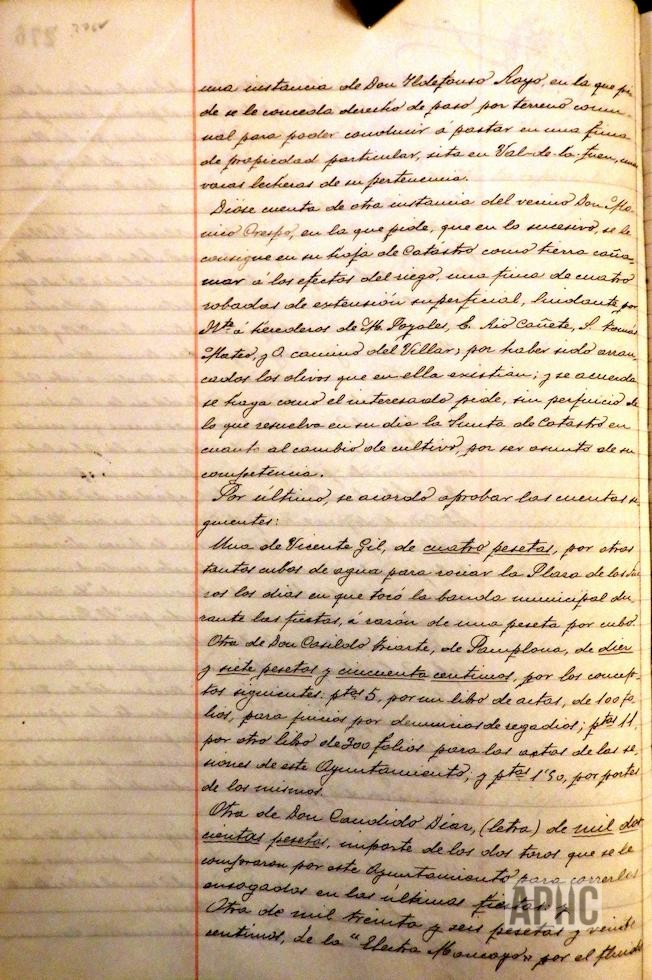 una instancia de Don Ildefonso Rayo, en la que pi-
de se le conceda derecho de paso por terreno comu-
nal para poder conducir á pastar en una finca
de propiedad particular, sita en Val-de-la-fuen, unas
vacas lecheras de su pertenencia.
Dióse cuenta de otra instancia del vecino Don Mó-
nico Crespo, en la que pide, que en lo sucesivo, se le
consigne en su hoja de Catástro como tierra caña-
mar á los efectos del riego, una finca de cuatro
robadas de extensión superficial, lindante por
Nte. á herederos de M. Pozales, E. Rio Cañete, S. Tomás
Mateo, y O. camino del Villar; por haber sido arran-
cados los olivos que en ella existían; y se acuerda
se haga como el interesado pide, sin perjuicio de
lo que resuelva en su dia la Junta de Catástro en
cuanto al cambio de cultivo, por ser asunto de su
competencia.
Por último, se acordó aprobar las cuentas si-
guientes:
Una de Vicente Gil, de cuatro pesetas, por otros
tantos cubos de agua para rociar la Plaza de los Fue-
ros los dias en que tocó la banda municipal du-
rante las fiestas, á razón de una peseta por cubo.
Otra de Don Casildo Iriarte, de Pamplona, de diez
y siete pesetas y cincuenta centimos, por los concep-
tos siguientes: ptas 5, por un libro de actas, de 100 fo-
lios, para juicios por denuncias de regadios; ptas 11,
por otro libro de 300 folios para las actas de las se-
siones de este Ayuntamiento; y ptas 1'50, por portes
de los mismos.
Otra de Don Candido Diaz, (letra) de mil dos-
cientas pesetas, importe de los dos toros que se le
compraron por este Ayuntamiento para correrlos
ensogados en las últimas fiestas.
Otra de mil treinta y seis pesetas y veinte
centimos, de la "Electra Moncayo" por el fluido
APHC